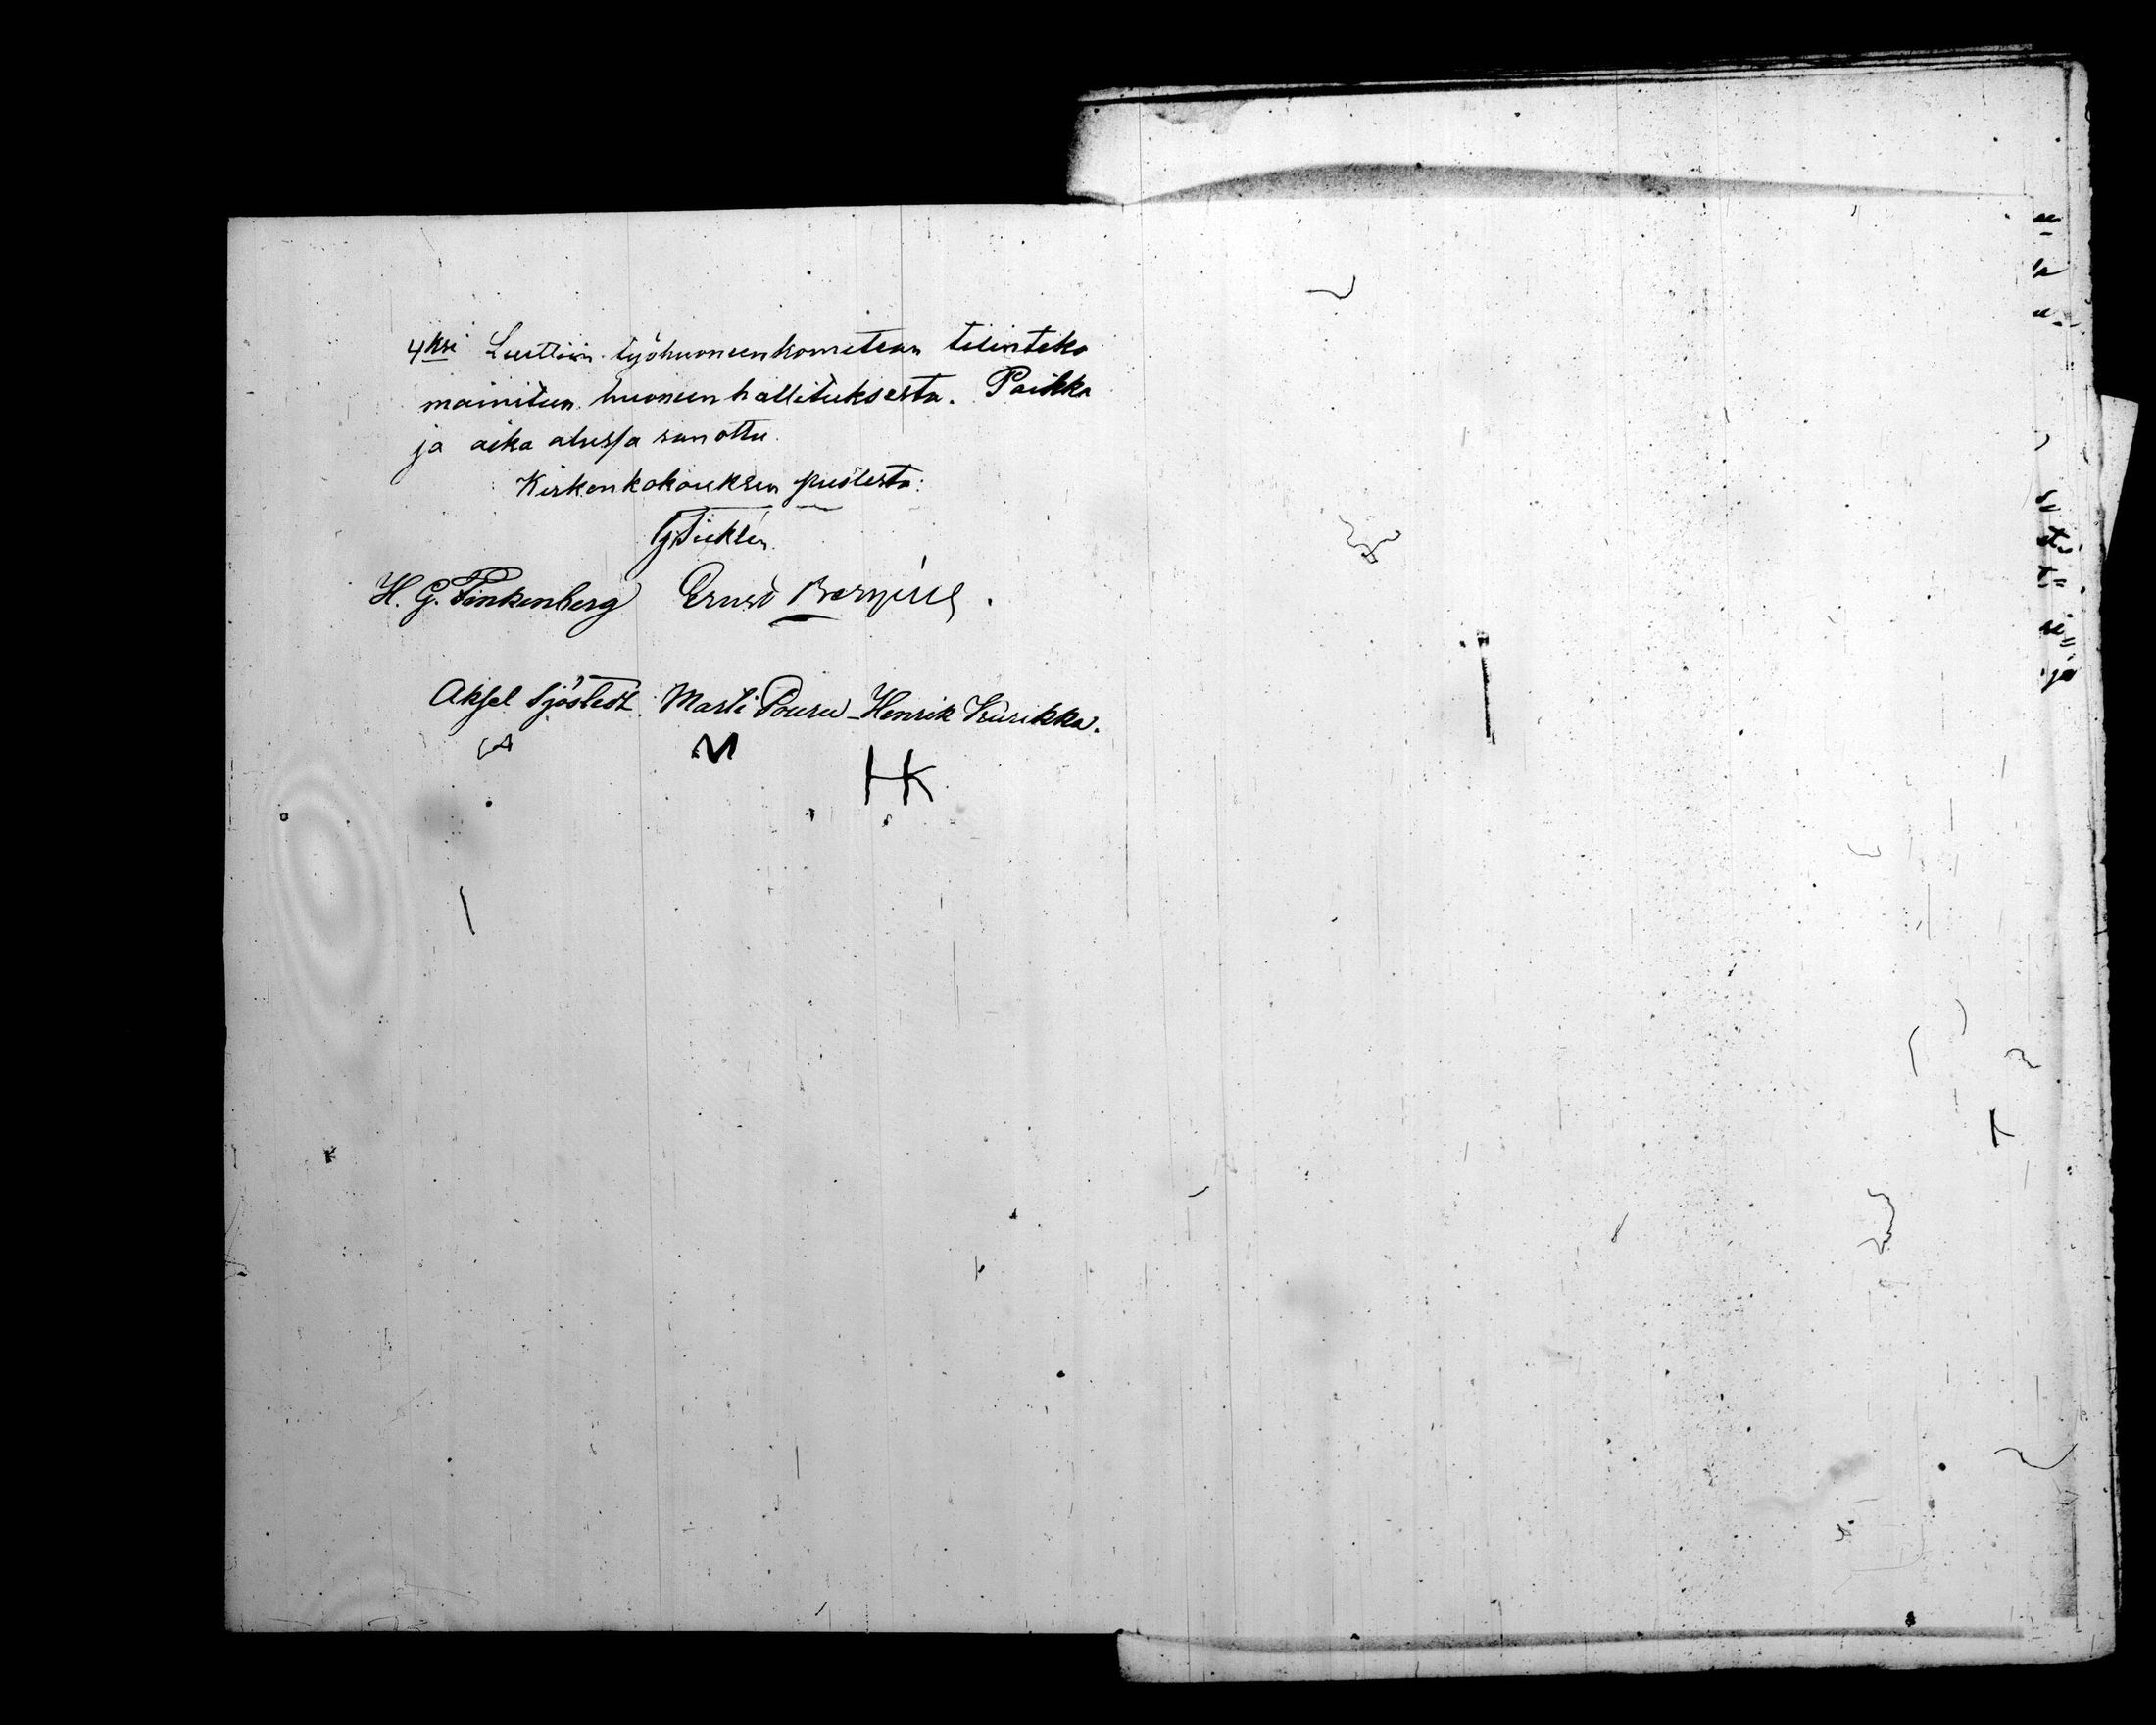 4ksi Luettiin työhuoneenkomitean tilinteko
mainitun huoneen hallituksesta. Paikka
ja aika alussa sanottu.
Kirkonkokouksen puolesta:
H. G. Finkenberg Ernst
Aksel Sjöstedt. Matti Pouru Henrik Kiirikka.
A M HK